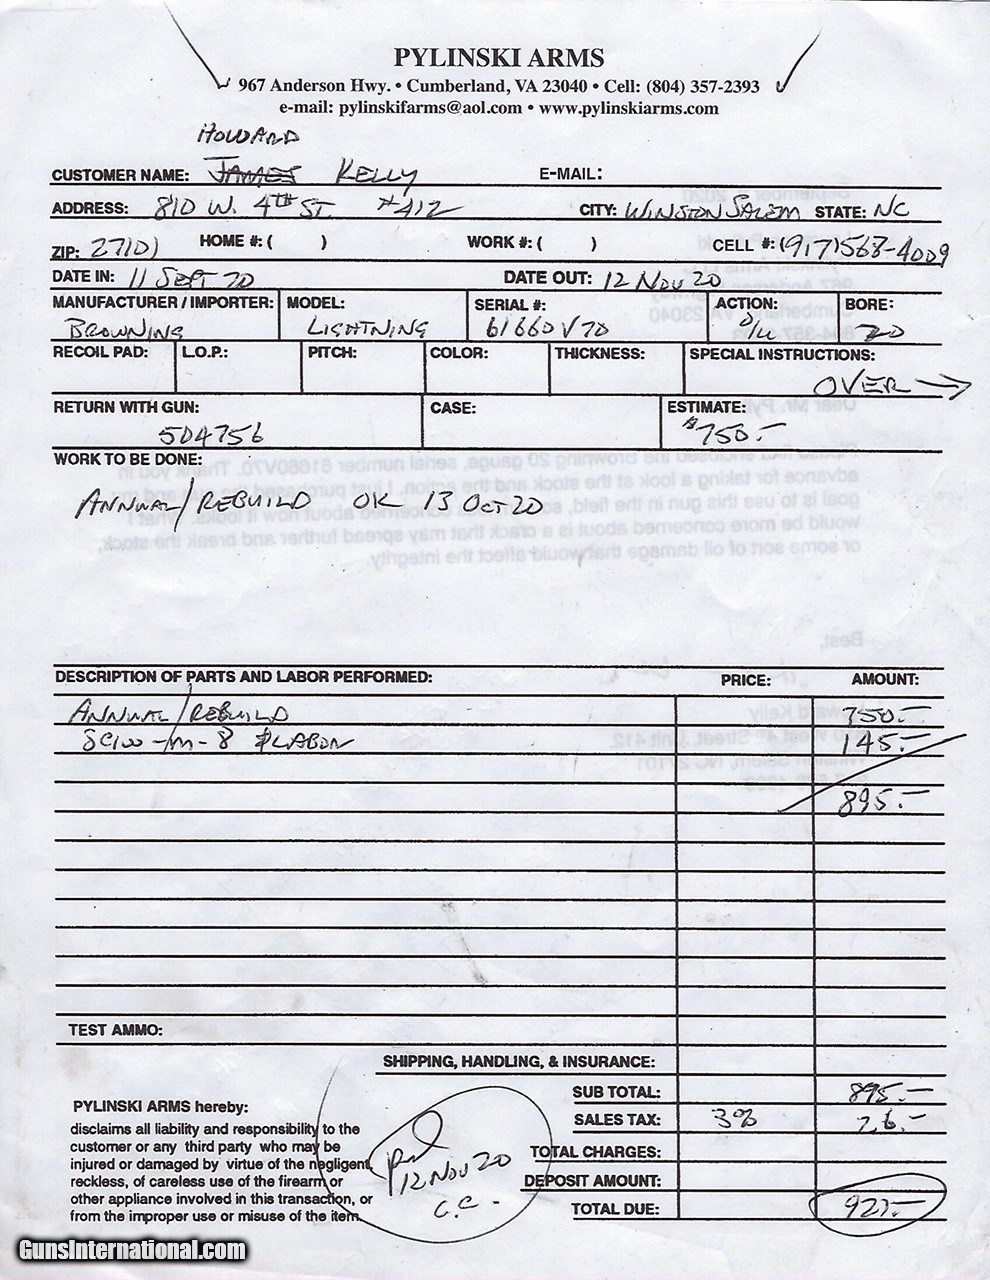 PYLINSKI ARMS
967 Anderson Hwy. • Cumberland, VA 23040 • Cell: (804) 357-2393
e-mail: pylinskifarms@aol.com • www.pylinskiarms.com
HOWARD
CUSTOMER NAME: JAMES KELLY E-MAIL:
ADDRESS: 810 W. 4TH ST. #412 CITY: WINSTON SALEM STATE: NC
ZIP: 27101 HOME #: ( ) WORK #: ( ) CELL #: (917) 568-4009
DATE IN: 11 SEPT 20 DATE OUT: 12 NOV 20
MANUFACTURER / IMPORTER: MODEL: SERIAL #: ACTION: BORE:
BROWNING LIGHTNING 61660V70 O/U 20
RECOIL PAD: L.O.P.: PITCH: COLOR: THICKNESS: SPECIAL INSTRUCTIONS:
OVER →
RETURN WITH GUN: CASE: ESTIMATE:
504756 $750.—
WORK TO BE DONE:
ANNUAL/REBUILD OK 13 OCT 20
DESCRIPTION OF PARTS AND LABOR PERFORMED: PRICE: AMOUNT:
ANNUAL/REBUILD 750.—
LABOR 145.—
895.—
TEST AMMO:
SHIPPING, HANDLING, & INSURANCE:
SUB TOTAL: 895.—
SALES TAX: 3% 26.—
TOTAL CHARGES:
DEPOSIT AMOUNT:
TOTAL DUE: 921.—
PYLINSKI ARMS hereby:
disclaims all liability and responsibility to the
customer or any third party who may be
injured or damaged by virtue of the negligent,
reckless, of careless use of the firearm or
other appliance involved in this transaction, or
from the improper use or misuse of the item.
Pd
12 NOV 20
C.C.
GunsInternational.com